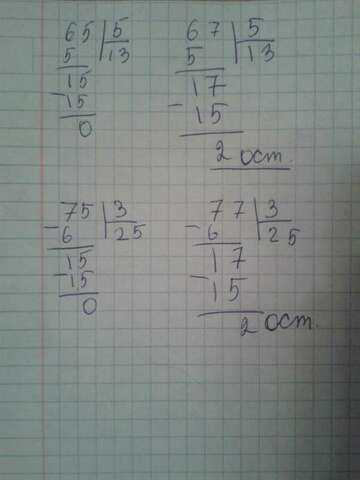 65 5
5 13
15
-15
0
67 5
5 13
17
-15
2 ост.
75 3
-6 25
15
-15
0
77 3
-6 25
17
-15
2 ост.